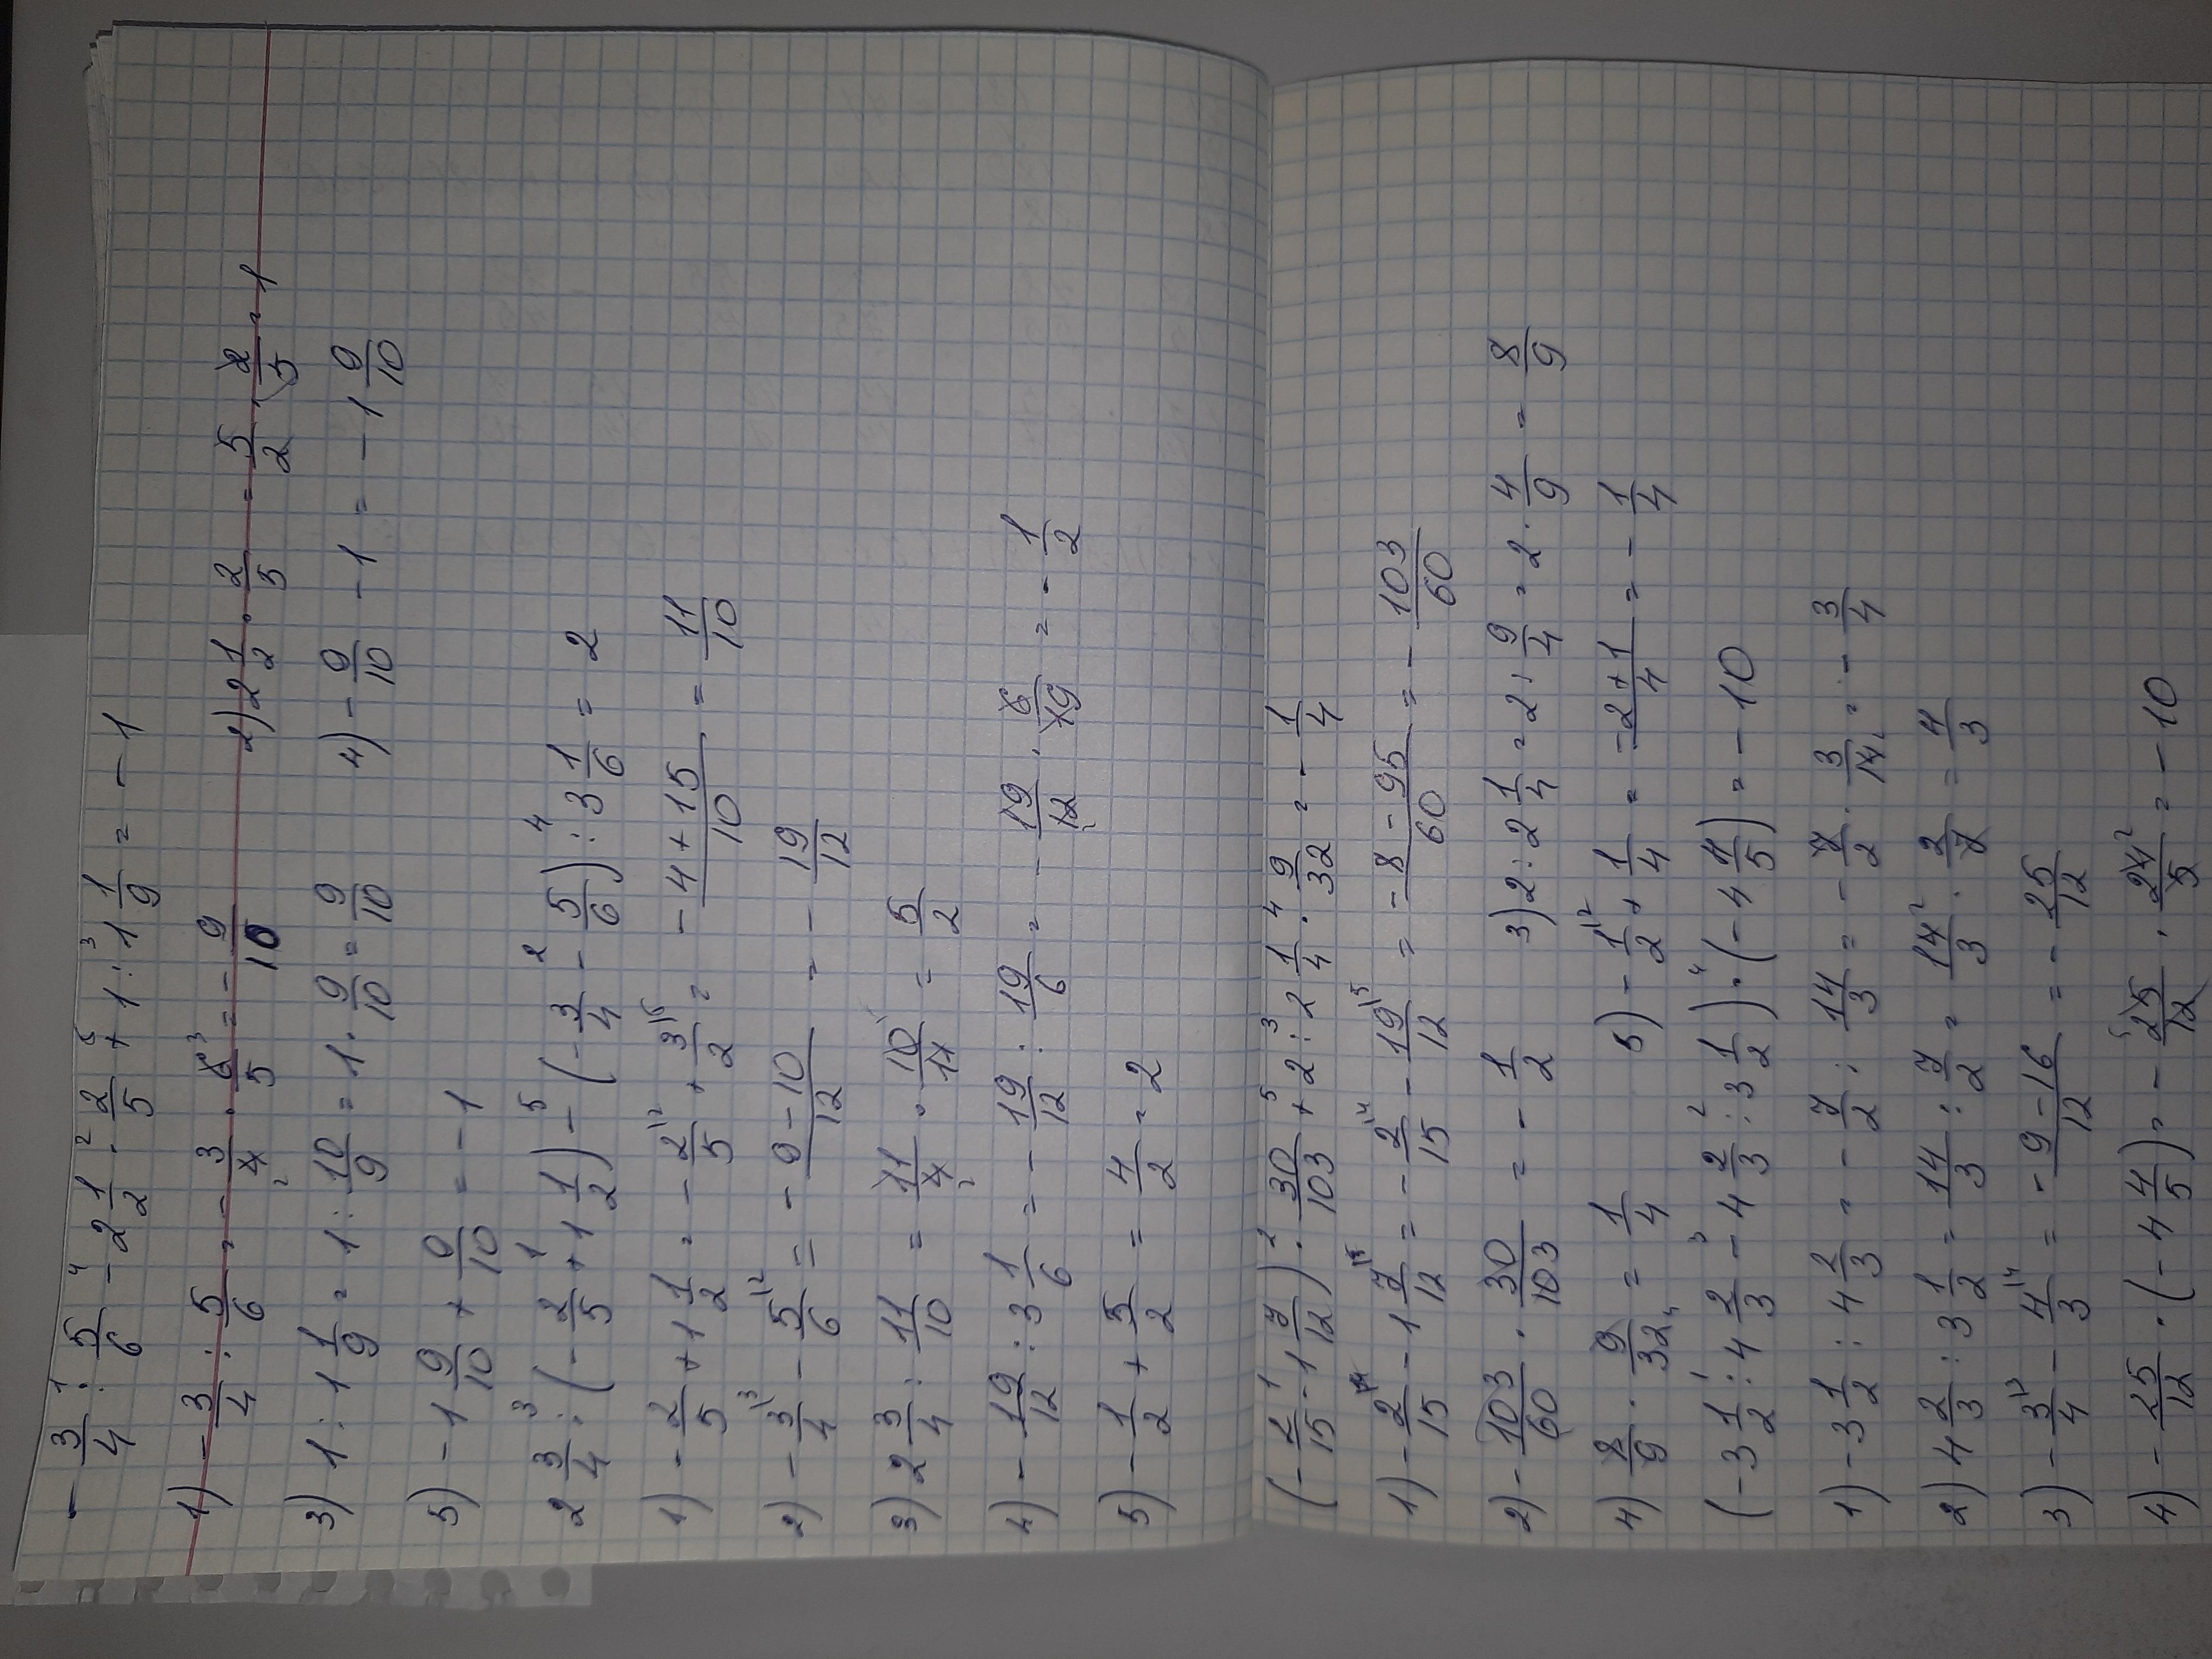 - 3/4 : 5/6 - 2 1/2 · 2/5 + 1 : 1 1/9 = - 1
1) - 3/4 : 5/6 = - 3/4 · 6/5 = - 9/10 2) 2 1/2 · 2/5 = 5/2 · 2/5 = 1
3) 1 : 1 1/9 = 1 : 10/9 = 1 · 9/10 = 9/10 4) - 9/10 - 1 = - 1 9/10
5) - 1 9/10 + 9/10 = - 1
2 3/4 : (- 2/5 + 1 1/2) - (- 3/4 - 5/6) : 3 1/6 = 2
1) - 2/5 + 1 1/2 = - 2/5 + 3/2 = - 4 + 15/10 = 11/10
2) - 3/4 - 5/6 = - 9 - 10/12 = - 19/12
3) 2 3/4 : 11/10 = 11/4 · 10/11 = 5/2
4) - 19/12 : 3 1/6 = - 19/12 : 19/6 = - 19/12 · 6/19 = - 1/2
5) - 1/2 + 5/2 = 4/2 = 2
(- 2/15 - 1 7/12) · 30/103 + 2 : 2 1/4 · 9/32 = - 1/4
1) - 2/15 - 1 7/12 = - 2/15 - 19/12 = - 8 - 95/60 = - 103/60
2) - 103/60 · 30/103 = - 1/2 3) 2 : 2 1/4 = 2 : 9/4 = 2 · 4/9 = 8/9
4) 8/9 · 9/32 = 1/4 5) - 1/2 + 1/4 = - 2 + 1/4 = - 1/4
(- 3 1/2 : 4 2/3 - 4 2/3 : 3 1/2) · (- 4 4/5) = - 10
1) - 3 1/2 : 4 2/3 = - 7/2 : 14/3 = - 7/2 · 3/14 = - 3/4
2) 4 2/3 : 3 1/2 = 14/3 : 7/2 = 14/3 · 2/7 = 4/3
3) - 3/4 - 4/3 = - 9 - 16/12 = - 25/12
4) - 25/12 · (- 4 4/5) = - 25/12 · 24/5 = - 10